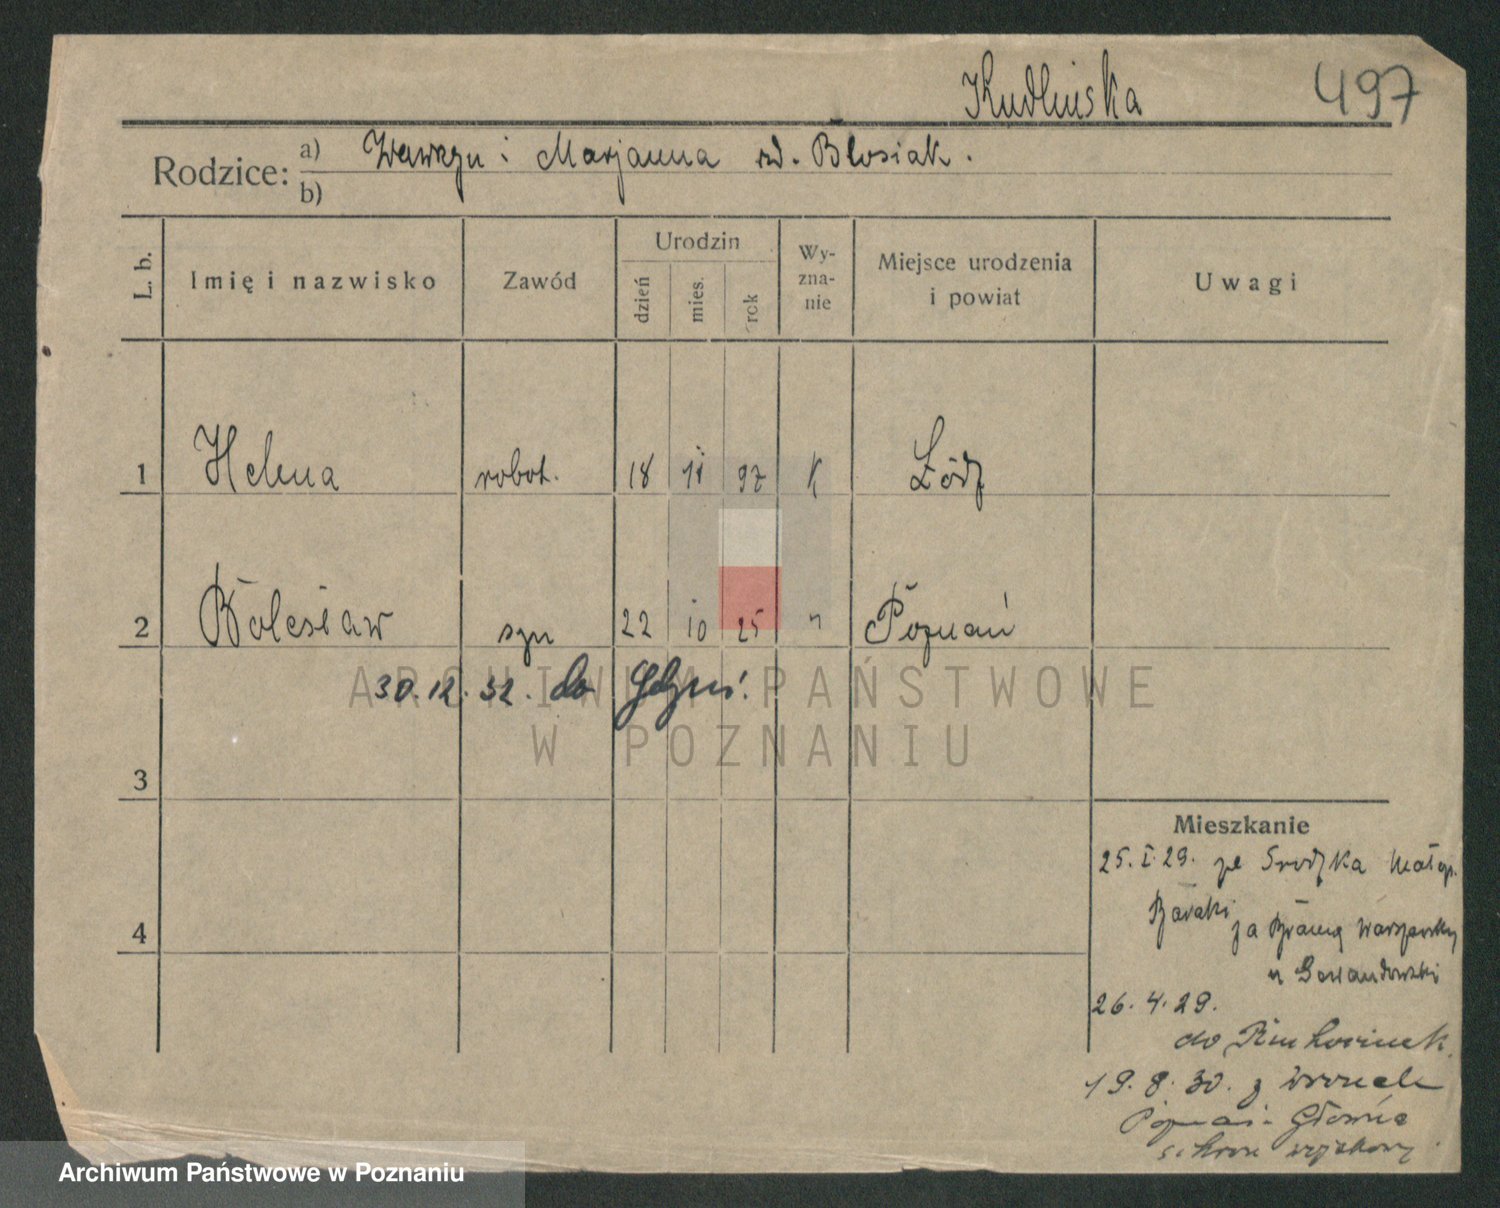 Kudlińska 497
Rodzice: a) Wawrzyn i Marjanna rd. Błosiak.
b)
L. b. Imię i nazwisko Zawód Urodzin dzień mies. rok Wy-zna-nie Miejsce urodzenia i powiat Uwagi
1 Helena robot. 18 11 97 K Łódź
2 Bolesław syn 22 10 25 " Poznań
30.12.32. do Gdyni.
ARCHIWUM PAŃSTWOWE
W POZNANIU
3
Mieszkanie
25.I.29. ze Srodzka
Baraki za Bramą Warszawską
4
u
26.4.29.
do
19.8.30. z Wronek
Poznań-Główna
schron wojskowy
Archiwum Państwowe w Poznaniu